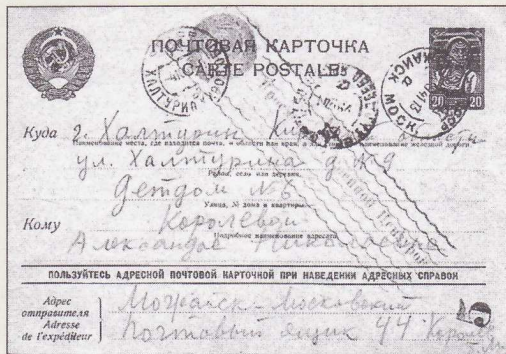 ПОЧТОВАЯ КАРТОЧКА
CARTE POSTALE
ХАЛТУРИН
МОСК.
20
Куда г. Халтурин
Наименование места, где находится почта, и области или края, а для наименование железной дороги
ул. Халтурина д №9
Район, село или деревня
Детдом №6
Улица, № дома и квартиры
Кому Королевой
Подробное наименование адресата
Александре Николаевне
ПОЛЬЗУЙТЕСЬ АДРЕСНОЙ ПОЧТОВОЙ КАРТОЧКОЙ ПРИ НАВЕДЕНИИ АДРЕСНЫХ СПРАВОК
Адрес отправителя
Adresse de l'expéditeur
Можайск-Московский
Почтовый ящик 44